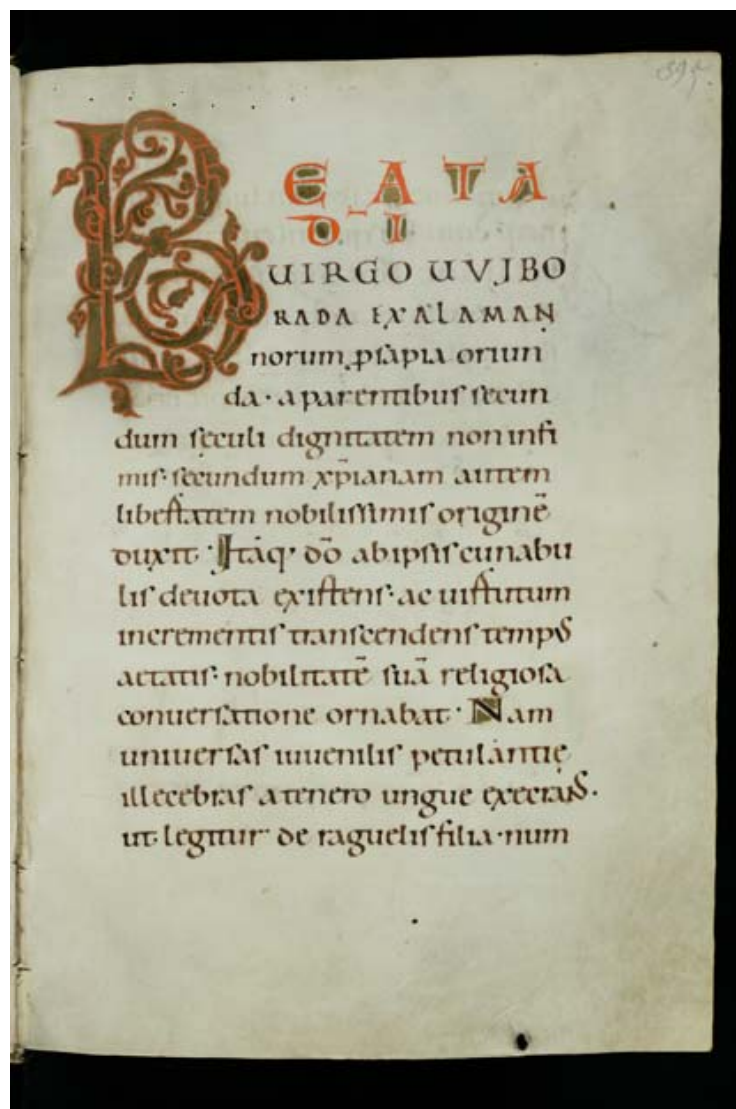 395
BEATA
D̄I
UIRGO UVIBO
RADA EX ALAMAN
norum ꝓsapia oriun
da · a parentibus secun
dum seculi dignitatem non infi
mis · secundum xp̄ianam autem
libertatem nobilissimis originē
duxit · Itaq· dō ab ipsis cunabu
lis devota existens · ac uirtutum
incrementis transcendens tempꝰ
aetatis · nobilitatē suā religiosa
conuersatione ornabat · Nam
universas iuuenilis petulantię
illecebras a tenero ungue execrans ·
ut legitur de raguelis filia · num